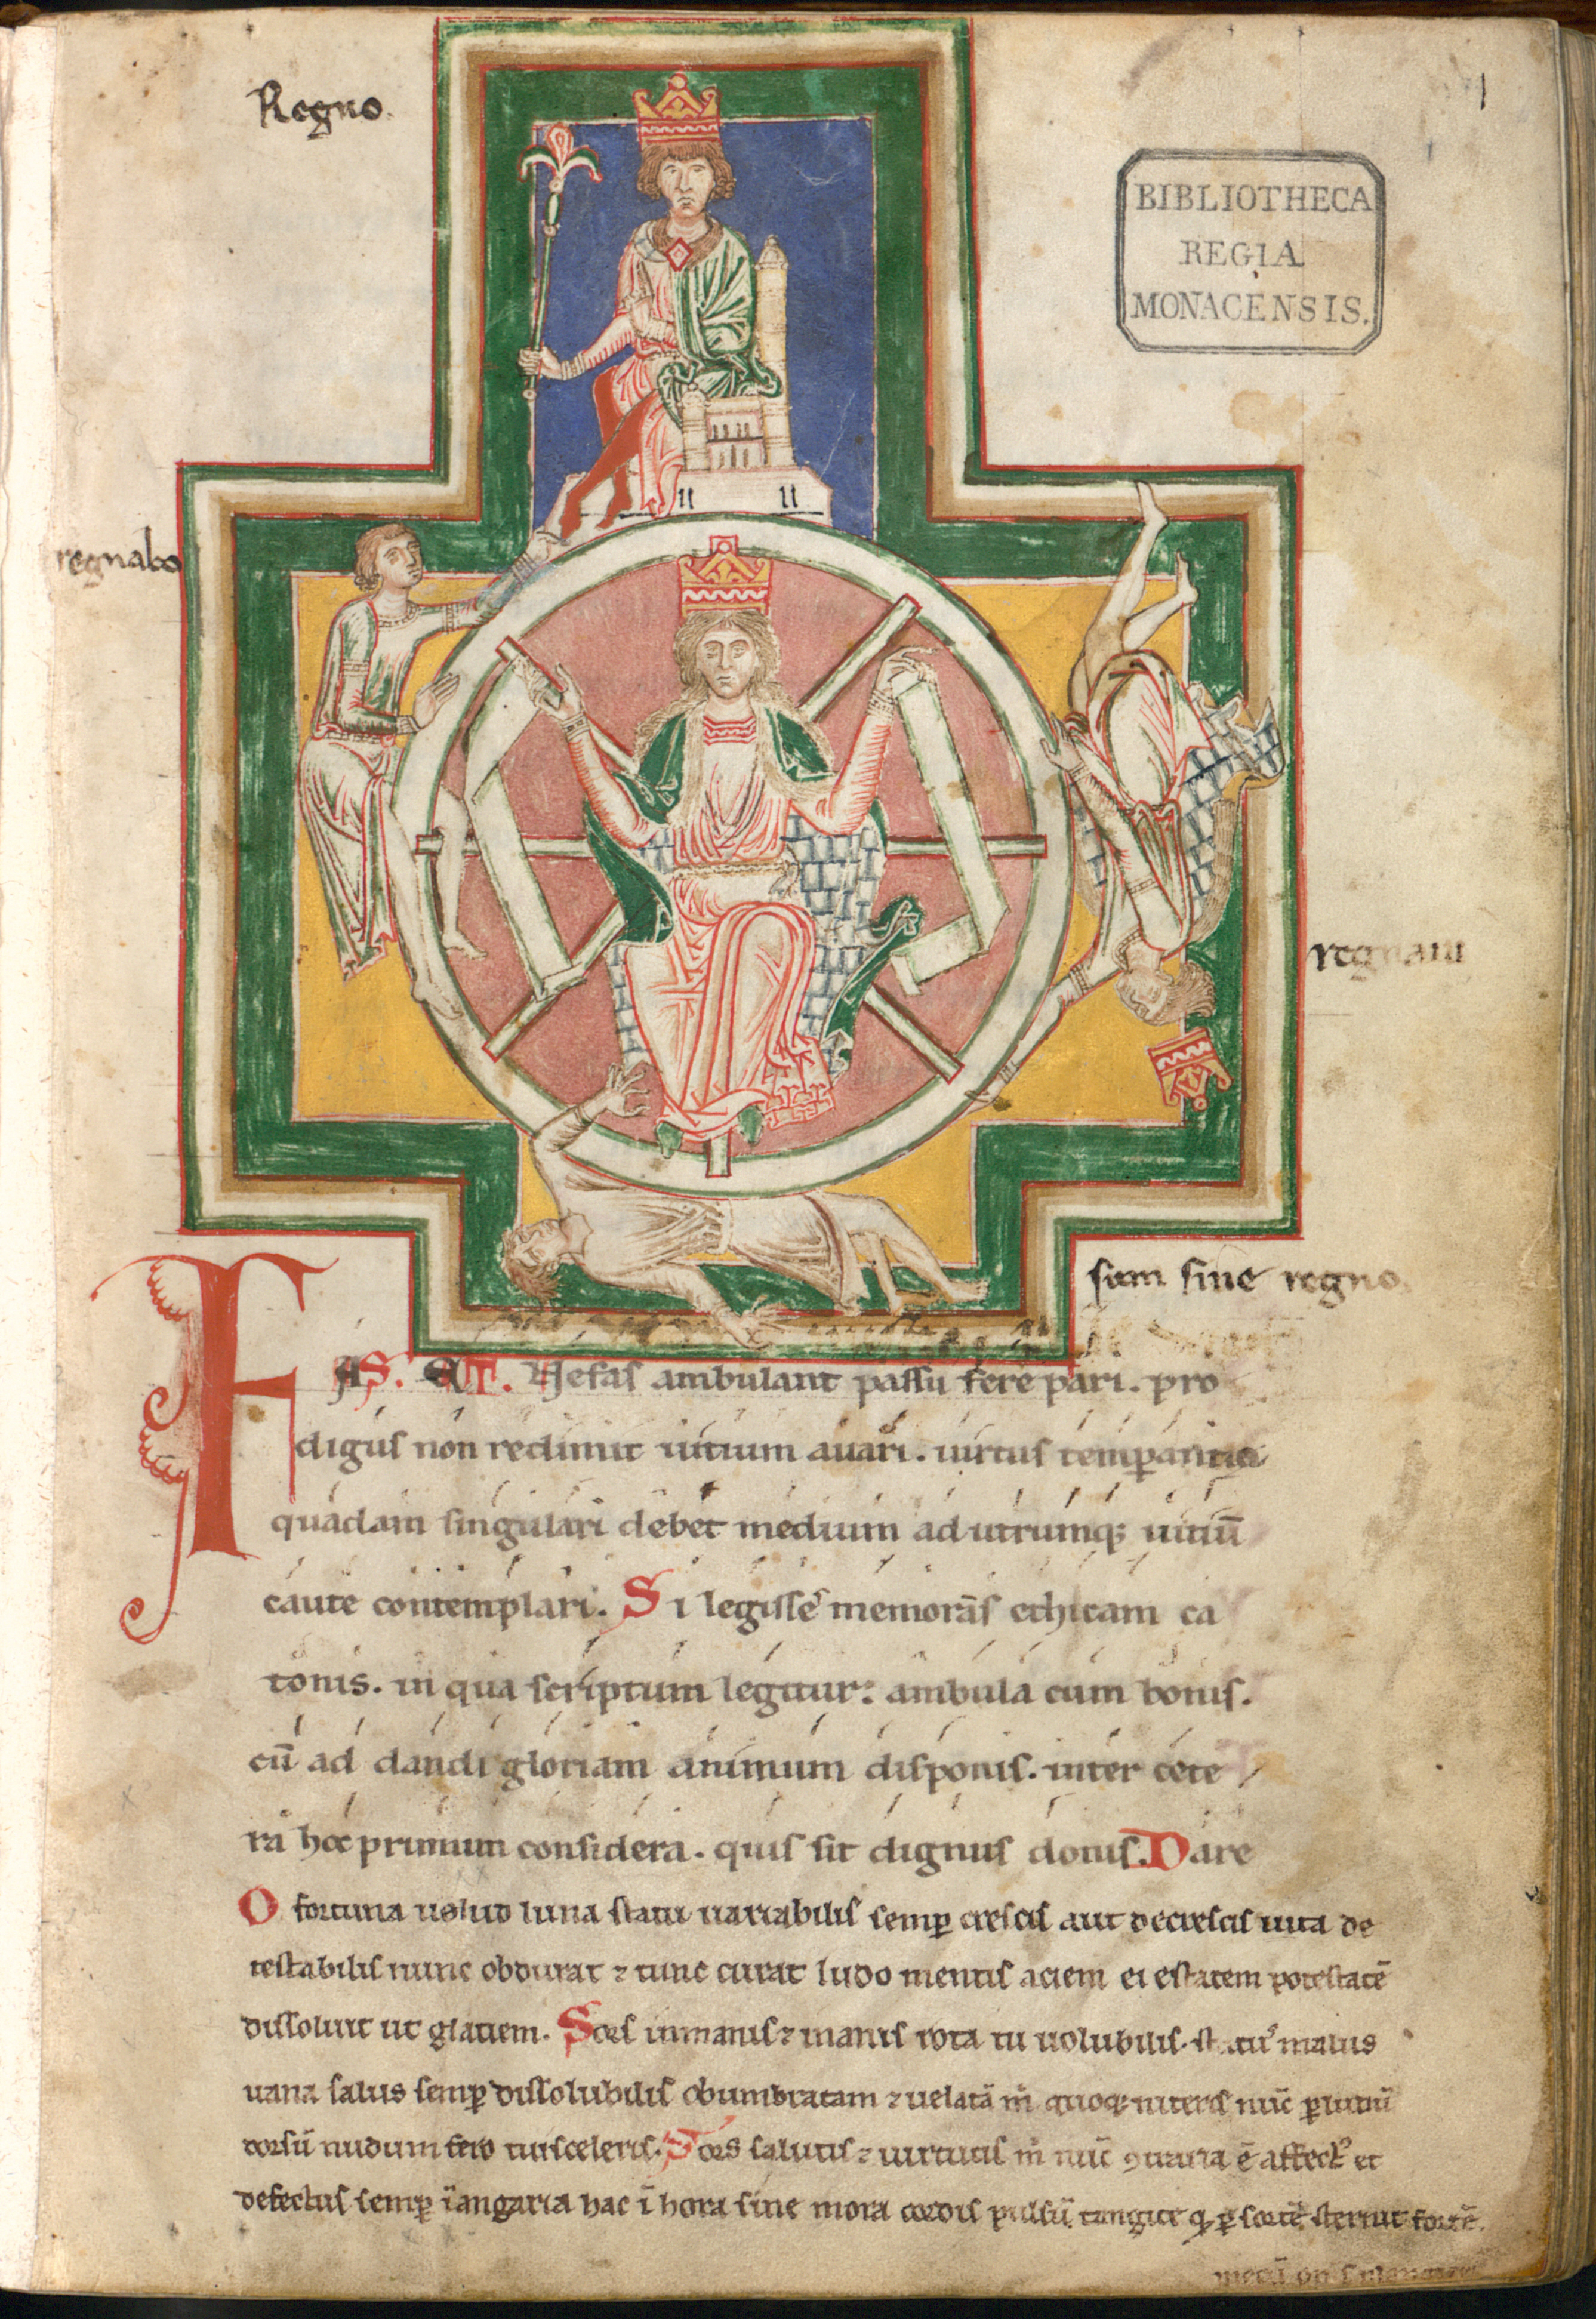 Regno.
1
BIBLIOTHECA
REGIA
MONACENSIS.
regnabo
regnaui
sum sine regno
FAS. ET. Nefas ambulant passu fere pari. pro
digus non redimit uitium auari. uirtus temꝑantia
quadam singulari debet medium ad utrumqꝫ uitiū
caute contemplari. Si legisse memoras ethicam ca
tonis. in qua scriptum legitur: ambula cum bonis.
cū ad dandi gloriam animum disponis. inter cete
ra hoc primum considera. quis sit dignus donis. Dare
O fortuna uelud luna statu uariabilis semꝑ crescis aut decrescis uita de
testabilis nunc obdurat ⁊ tunc curat ludo mentis aciem egestatem potestatē
dissoluit ut glaciem. Sors inmanis ⁊ inanis rota tu uolubilis. statꝰ malus
uana salus semꝑ dissolubilis obumbratam ⁊ uelatā m̄ quoqꝫ niteris nūc ꝑ ludū
dorsū nudum fero tui sceleris. Sors salutis ⁊ uirtutis m̄ nūc ꝯtraria ē affectꝰ et
defectus semꝑ ī angaria hac ī hora sine mora cordis pulsū tangite ꝙ ꝑ sortē sternit fortē.
mecū om̄s